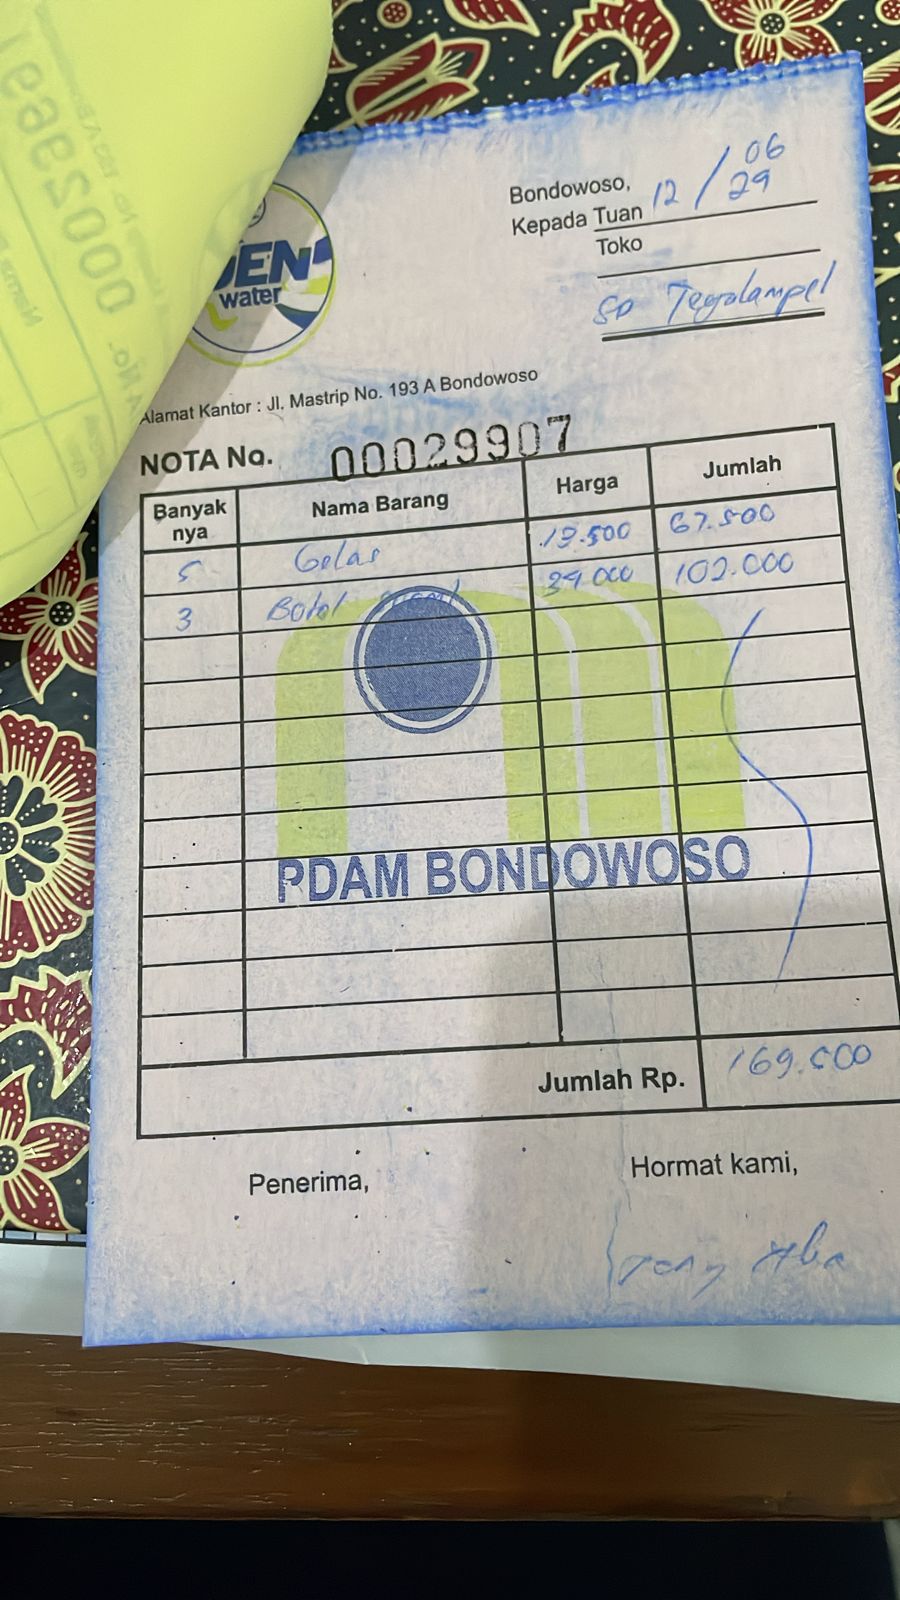 Bondowoso, 12 / 06
29
Kepada Tuan
Toko
SD Tegalampel
JEN
water
Alamat Kantor : Jl. Mastrip No. 193 A Bondowoso
NOTA No. 00029907
Banyak nya Nama Barang Harga Jumlah
5 Gelas 13.500 67.500
3 Botol 34.000 102.000
PDAM BONDOWOSO
Jumlah Rp. 169.500
Penerima, Hormat kami,